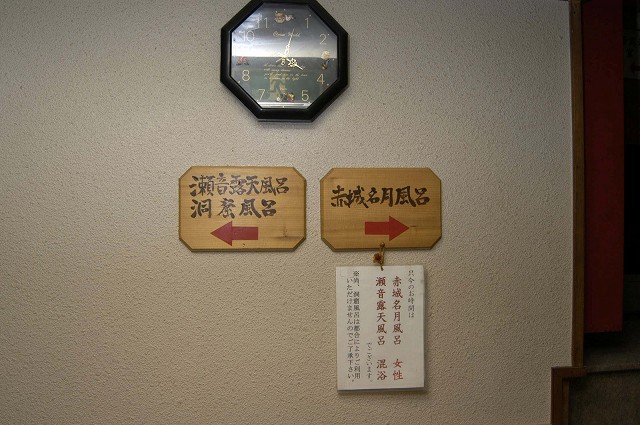 11
1
10
2
8
4
7
5
瀬音露天風呂
洞窟風呂
赤城名月風呂
只今のお時間は
赤城名月風呂 女性
瀬音露天風呂 混浴
でございます。
※尚、洞窟風呂は都合によりご利用
いただけませんのでご了承下さい。